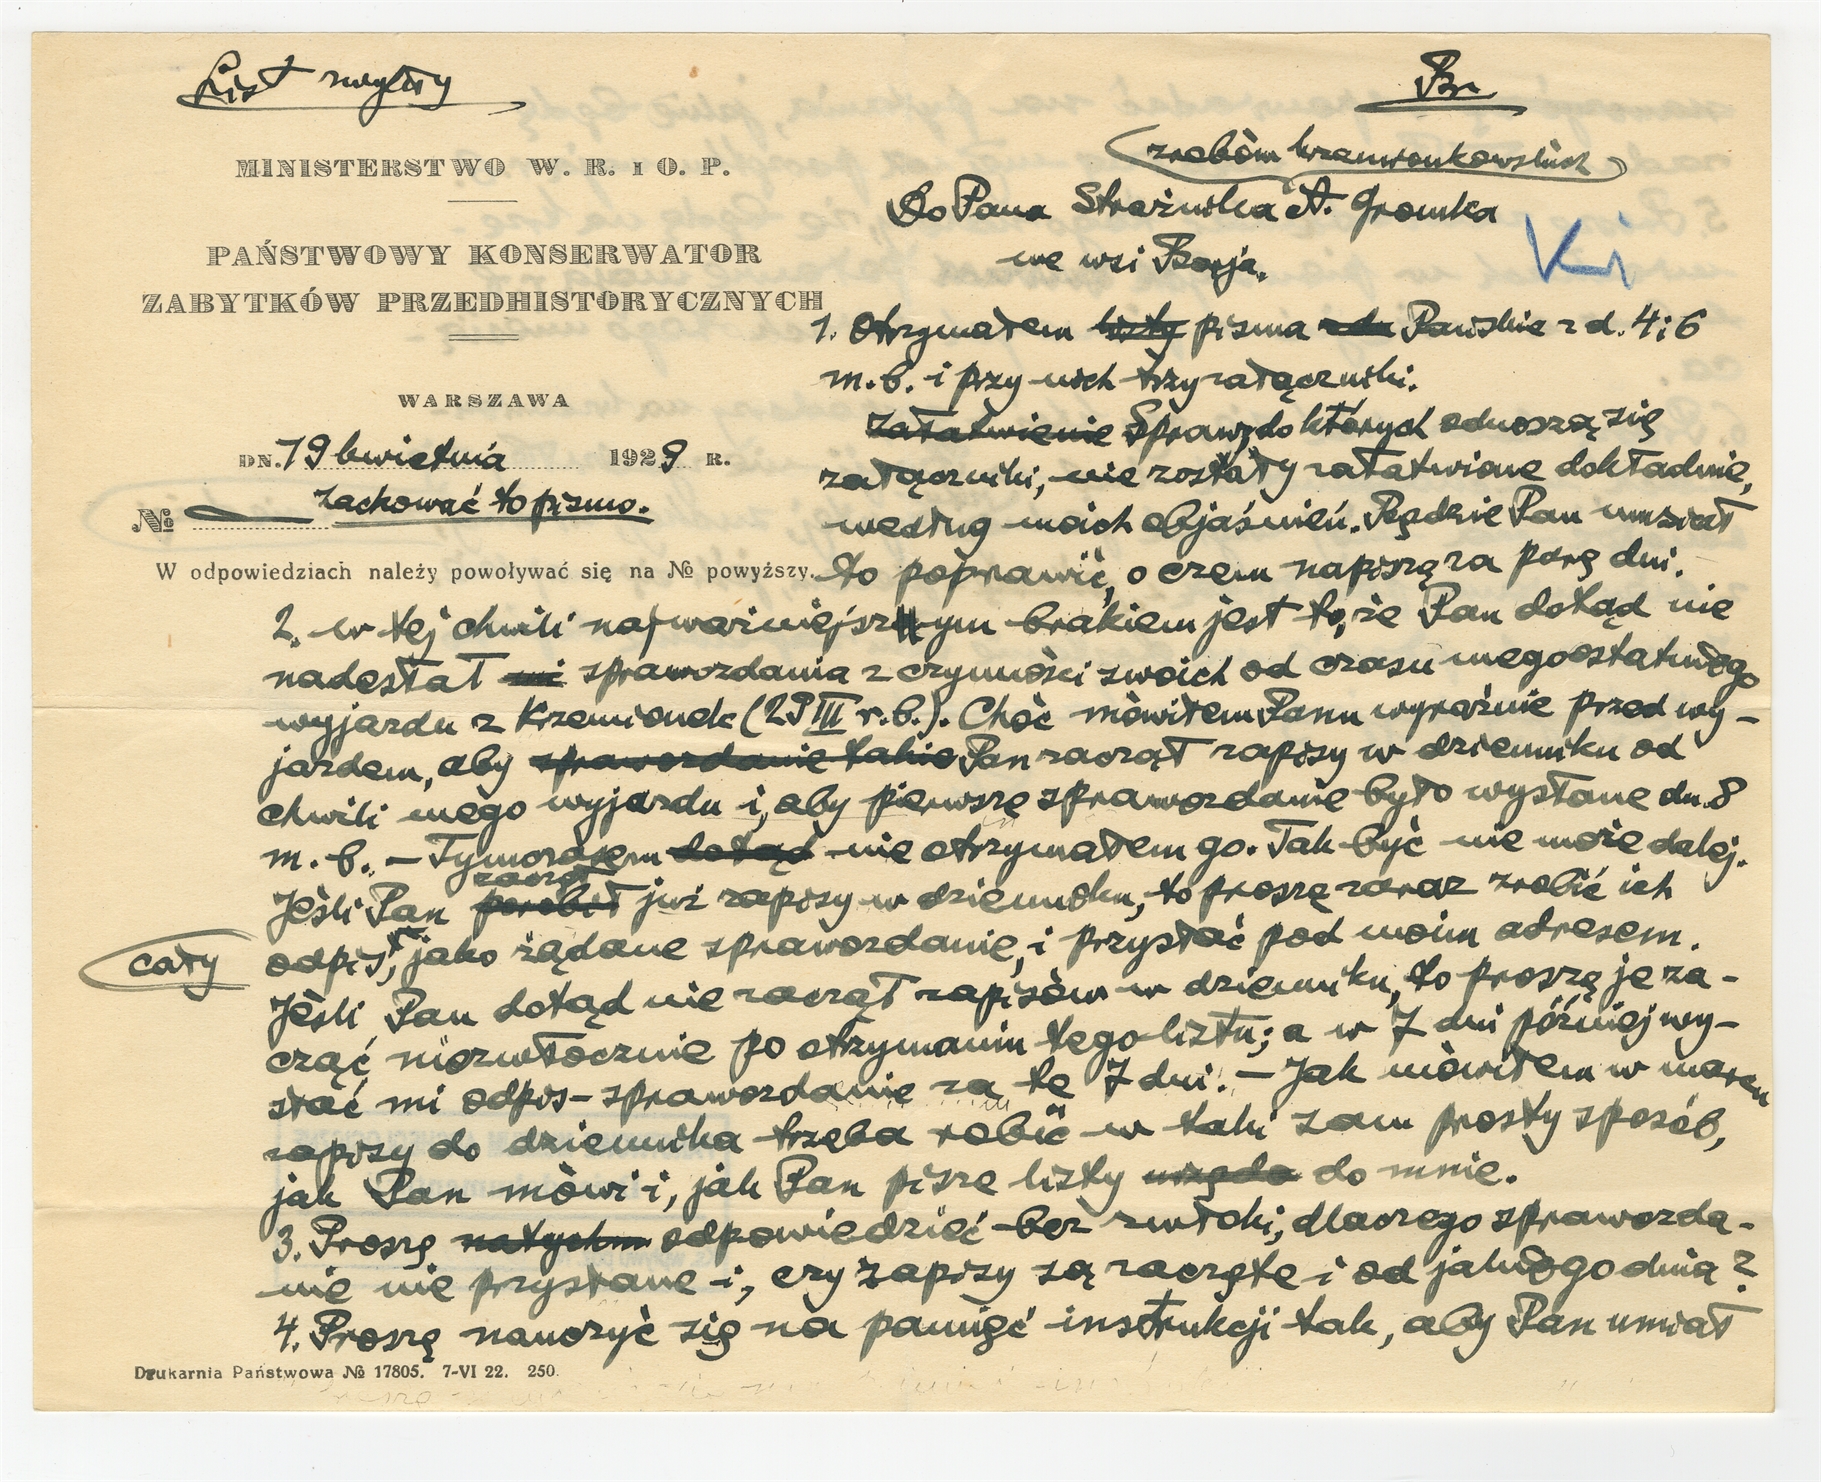 List zwykły
Br
MINISTERSTWO W. R. i O. P.
PAŃSTWOWY KONSERWATOR
ZABYTKÓW PRZEDHISTORYCZNYCH
WARSZAWA
DN. 19 kwietnia 1929 R.
zachować to pismo.
№
W odpowiedziach należy powoływać się na № powyższy.
zrębów krzemionkowskich
Do Pana Strażnika A. Gromka
we wsi Borja.
Ki
1. Otrzymałem listy pisma Pańskie z d. 4 i 6
m. b. i przy nich trzy załączniki.
Załatwienie Sprawy, do których odnoszą się
załączniki, nie zostały załatwione dokładnie,
według moich objaśnień. Będzie Pan musiał
to poprawić, o czem napiszę za parę dni.
2. w tej chwili najważniejszym brakiem jest to, że Pan dotąd nie
nadesłał mi sprawozdania z czynności swoich od czasu mego ostatniego
wyjazdu z Krzemionek (29 III r. b.). Choć mówiłem Panu wyraźnie przed wy-
jazdem, aby sprawozdanie takie Pan zaczął zapisy w dzienniku od
chwili mego wyjazdu i, aby pierwsze sprawozdanie było wysłane dn. 8
m. b. — Tymczasem dotąd nie otrzymałem go. Tak być nie może dalej.
zaczął
Jeśli Pan porobił już zapisy w dzienniku, to proszę zaraz zrobić ich
cały
odpis, jako żądane sprawozdanie, i przysłać pod moim adresem.
Jeśli Pan dotąd nie zaczął zapisów w dzienniku, to proszę je za-
cząć niezwłocznie po otrzymaniu tego listu; a w 7 dni później wy-
słać mi odpis-sprawozdanie za te 7 dni. — Jak mówiłem w marcu
zapisy do dziennika trzeba robić w taki sam prosty sposób,
jak Pan mówi i, jak Pan pisze listy do mnie.
3. Proszę natychm odpowiedzieć bez zwłoki, dlaczego sprawozda-
nie nie przysłane i, czy zapisy są zaczęte i od jakiego dnia?
4. Proszę nauczyć się na pamięć instrukcji tak, aby Pan umiał
Drukarnia Państwowa № 17805. 7-VI 22. 250.